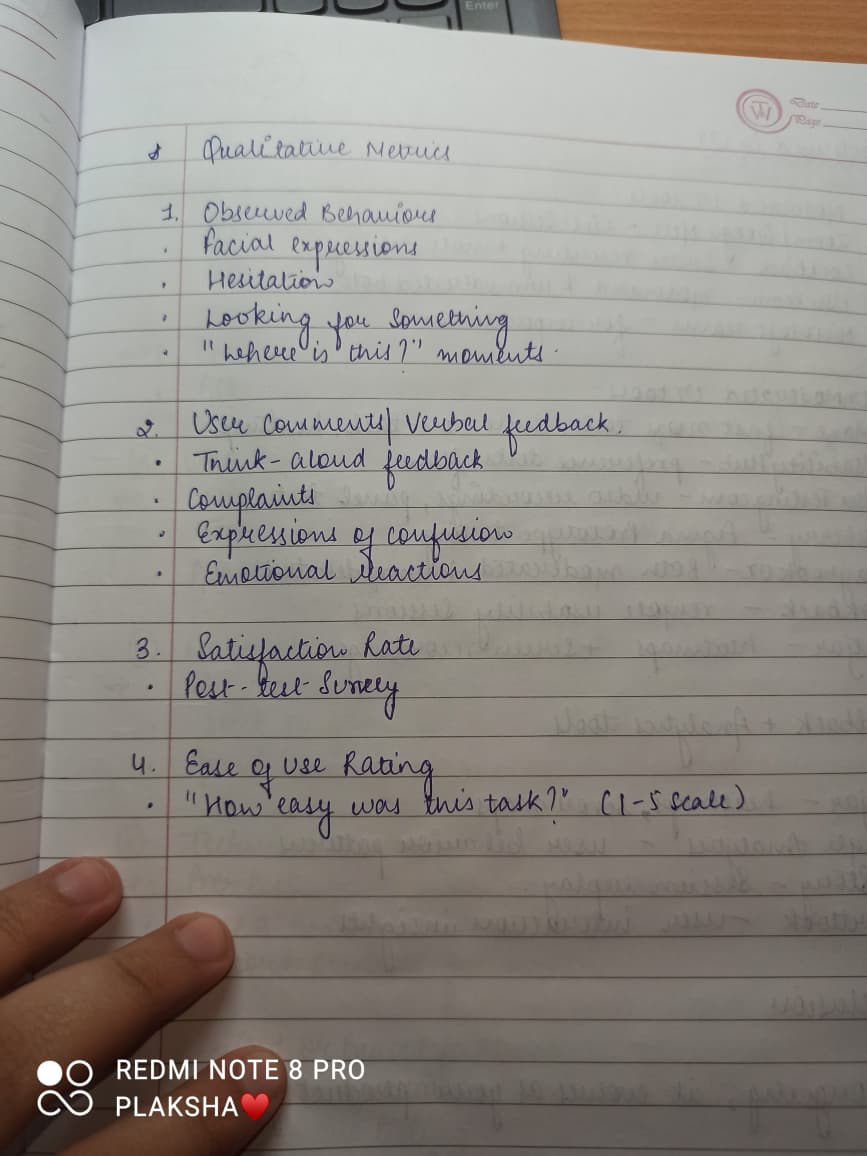 Enter
Date
Page
Qualitative Metrics
1. Observed Behaviour
. Facial expressions
. Hesitation
. Looking for something
. "Where is this?" moments.
2. User comments/ Verbal feedback.
. Think-aloud feedback
. Complaints
. Expressions of confusion
. Emotional Reactions
3. Satisfaction Rate
. Post-test Survey
4. Ease of Use Rating
. "How easy was this task?" (1-5 scale)
REDMI NOTE 8 PRO
PLAKSHA❤️